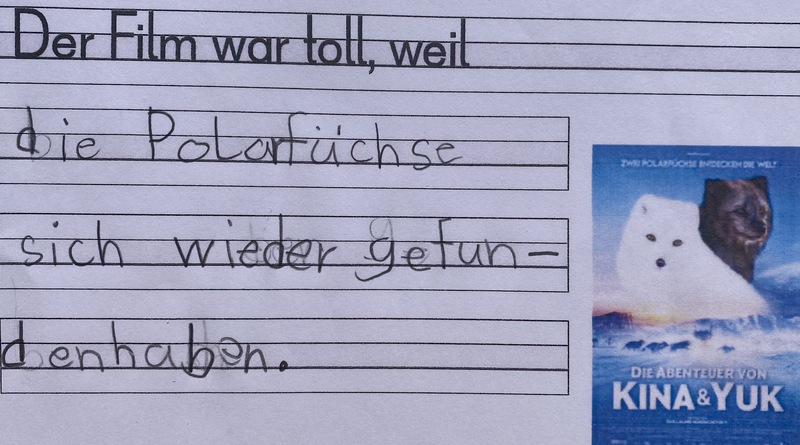 Der Film war toll, weil
die Polarfüchse
sich wieder gefun-
denhaben.
ZWEI POLARFÜCHSE ENTDECKEN DIE WELT
DIE ABENTEUER VON
KINA & YUK